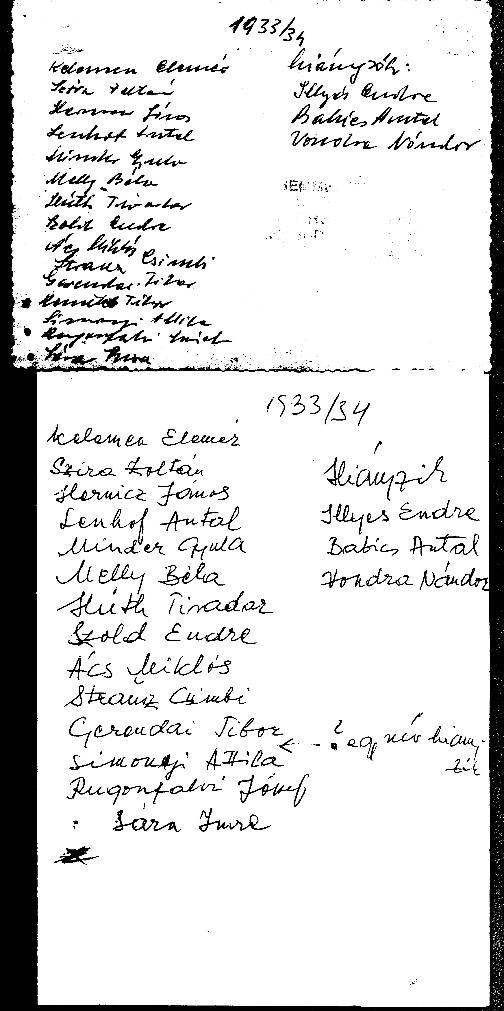 1933/34
Kelemen Elemér
Szira Zoltán
János
Lenhof Antal
Minder Gyula
Melly Béla
Hüth Tivadar
Endre
Ács Miklós
Csimbi
Gerendai Tibor
Tibor
Simonyi Attila
Sára Imre
hiányzók:
Illyés Endre
Babics Antal
Vondra Nándor
1933/34
Kelemen Elemér
Szira Zoltán
Hernicz János
Lenhof Antal
Minder Gyula
Melly Béla
Hüth Tivadar
Szold Endre
Ács Miklós
Strausz Csimbi
Gerendai Tibor
Simonyi Attila
Rugonfalvi József
: Sára Imre
Hiányzik
Illyes Endre
Babics Antal
Vondra Nándor
← - ? egy név hiány-
zik